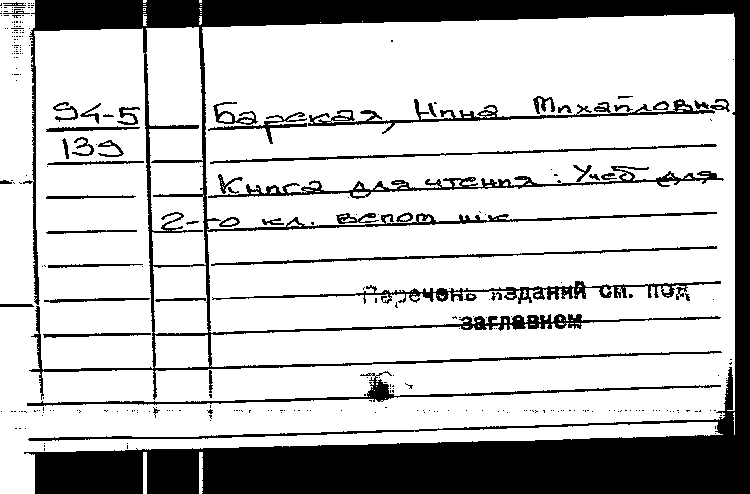 94-5 Барская, Нина Михайловна
139
Книга для чтения : Учеб для
2-го кл. вспом шк
Перечень изданий см. под
заглавием